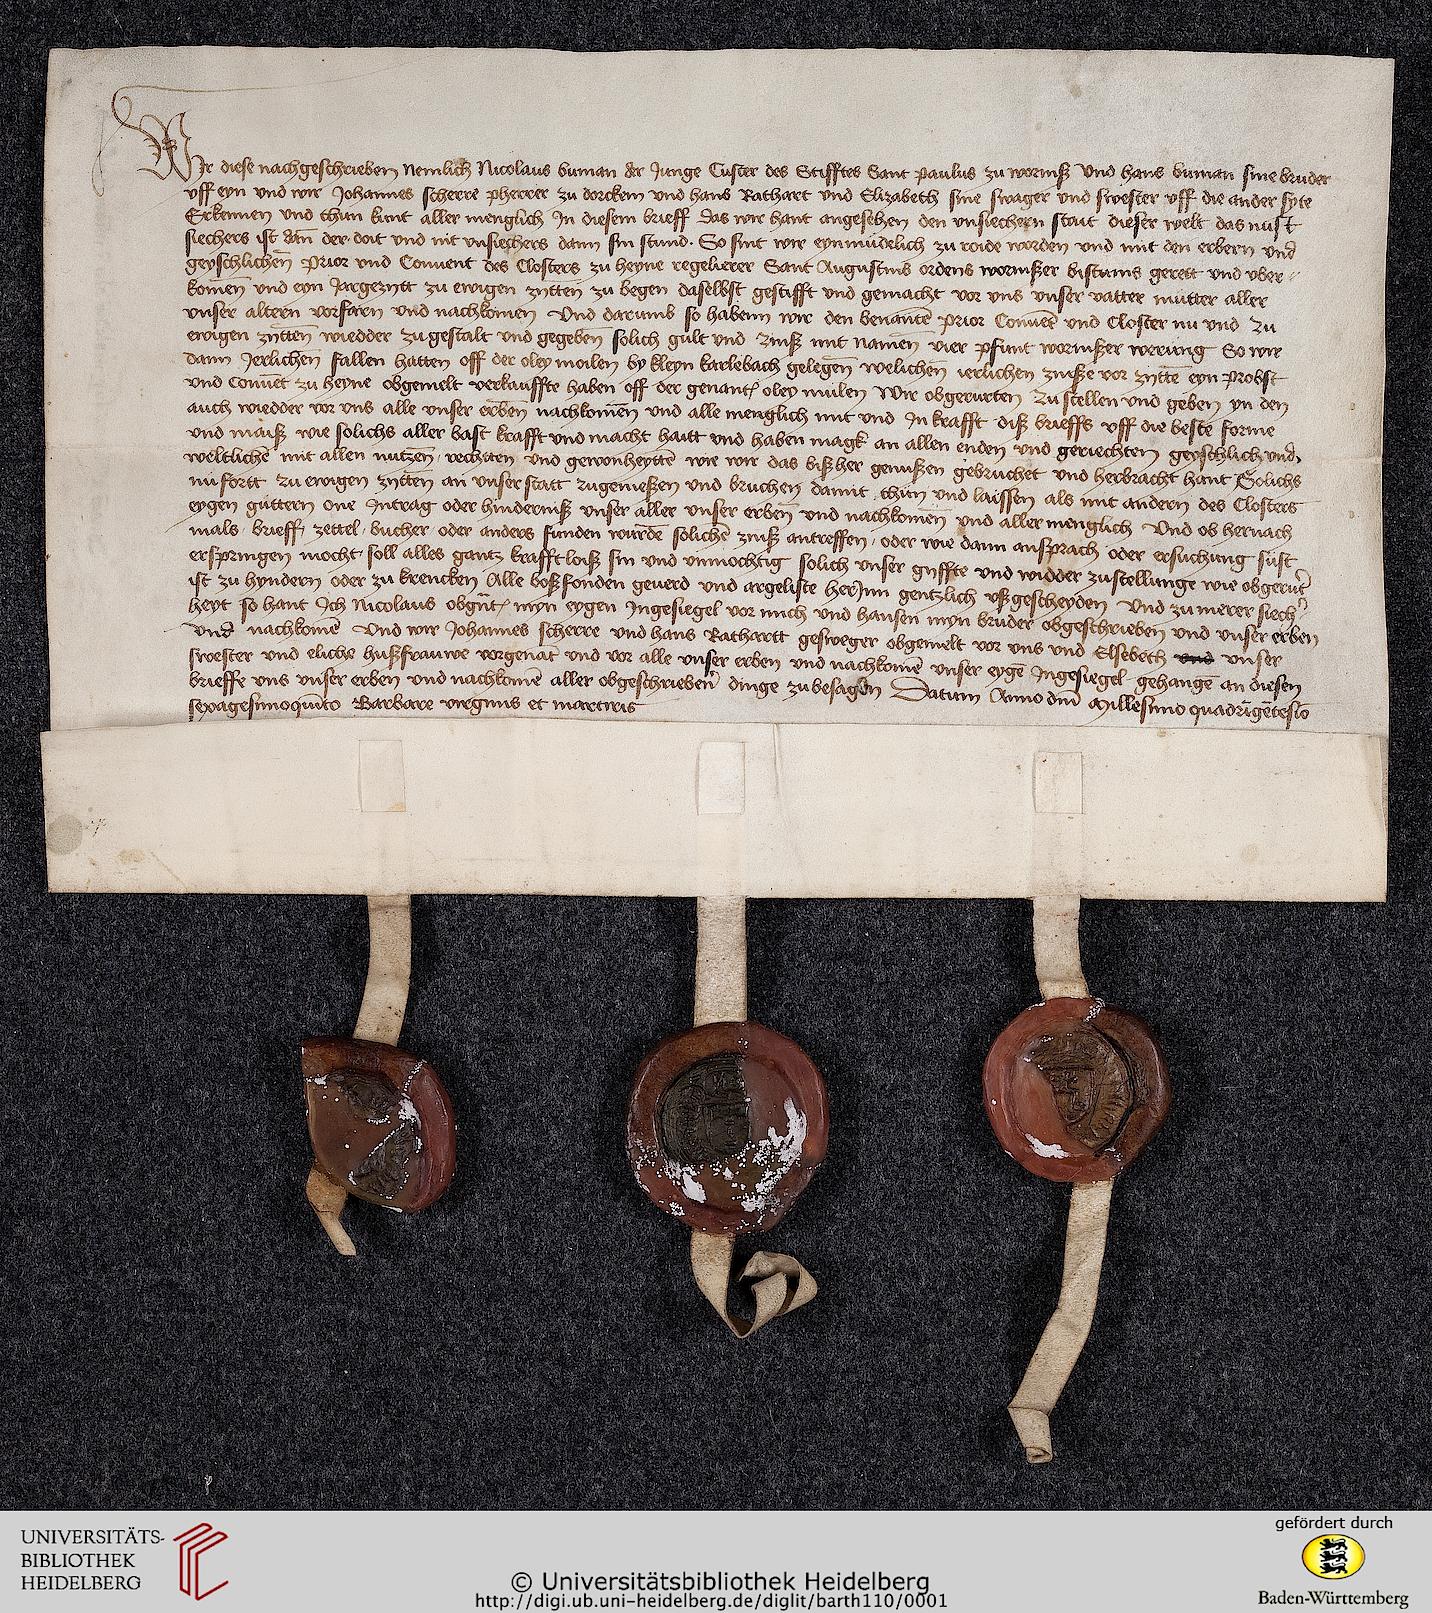 Wir diese nachgeschrieben Nemlich Nicolaus buman der Junge Custer des Stifftes Sant paulus zu wormß Und hans buman sine bruder
uff eyn und wir Johannes scherre pherrer zu dorckem und hans Rathart und Elizabeth sine swager und swester uff die ander syte
Erkennen und thun kunt aller menglich In diesem brieff das wir hant angesehen den unsiechern stait dieser welt das nust
siechers ist dan der doit und nit unsiechers dann sin stund. So sint wir eynmudelich zu roide worden und mit den erbern und
geyschlichen Prior und Convent des Closters zu heyne regelierer Sant Augustins ordens wormßer bistums gerett und uber-
komen und eyn Jargezytt zu ewigen zytten zu begen daselbst gestifft und gemacht vor uns unser vatter mutter aller
unser altern vorfaren und nachkomen Und darumb so habenn wir den benante Prior Convet und Closter nu und zu
ewigen zytten wiedder zugestalt und gegeben solich gult und zinß mit namen vier pfunt wormßer werung So wir
dann Jerlichen fallen hatten off der oley moilen by kleyn karlebach gelegen welichen ierlichen zinße vor zytte eyn Probst
und Convet zu heyne obgemelt verkauffte haben off der genant oley mulen Wir obgerurten zu stellen und geben yn den
auch wiedder vor uns alle unser erben nachkomen und alle menglich mit und In krafft diß brieffs uff die beste forme
und mauß wie solichs aller bast krafft und macht haitt und haben magk an allen enden und geriechten geyschlich und
weltliche mit allen nutzen rechtten und gewonheytte wie wir das bißher genußen gebruchet und herbracht hant Solichs
nu fortt zu ewigen zytten an unser statt zugenießen und bruchen damit thun und laissen als mit andern des Closters
eygen guttern one Intrag oder hinderniß unser aller unser erben und nachkomen und aller menglich Und ob hernach
mals brieff zettel bucher oder anders funden wurde soliche zinß antreffen oder wie dann ansprach oder ersuchung sust
erspringen mocht soll alles gantz krafftloiß sin und unmochtig solich unser gyffte und widder zustellunge wie obgerurt
ist zu hyndern oder zu krencken Alle boßfonden geuerd und argeliste herInn gentzlich ußgescheyden Und zu merer siech-
heyt so hant Ich Nicolaus obgnt myn eygen Ingesiegel vor mich und hansen myn bruder obgeschrieben und unser erben
und nachkome Und wir Johannes scherre und hans Rathartt gesweger obgemelt vor uns und Elsebeth und unser
swester und eliche hußfrauwe vorgenat und vor alle unser erben und nachkome unser eyge Ingesiegel gehangen an diesen
brieffe uns unser erben und nachkome aller obgeschrieben dinge zubesagen Datum Anno dni Millesimo quadringetesio
sexagesimoquito Barbare virginis et martiris
UNIVERSITÄTS-
BIBLIOTHEK
HEIDELBERG
© Universitätsbibliothek Heidelberg
http://digi.ub.uni-heidelberg.de/diglit/barth110/0001
gefördert durch
Baden-Württemberg